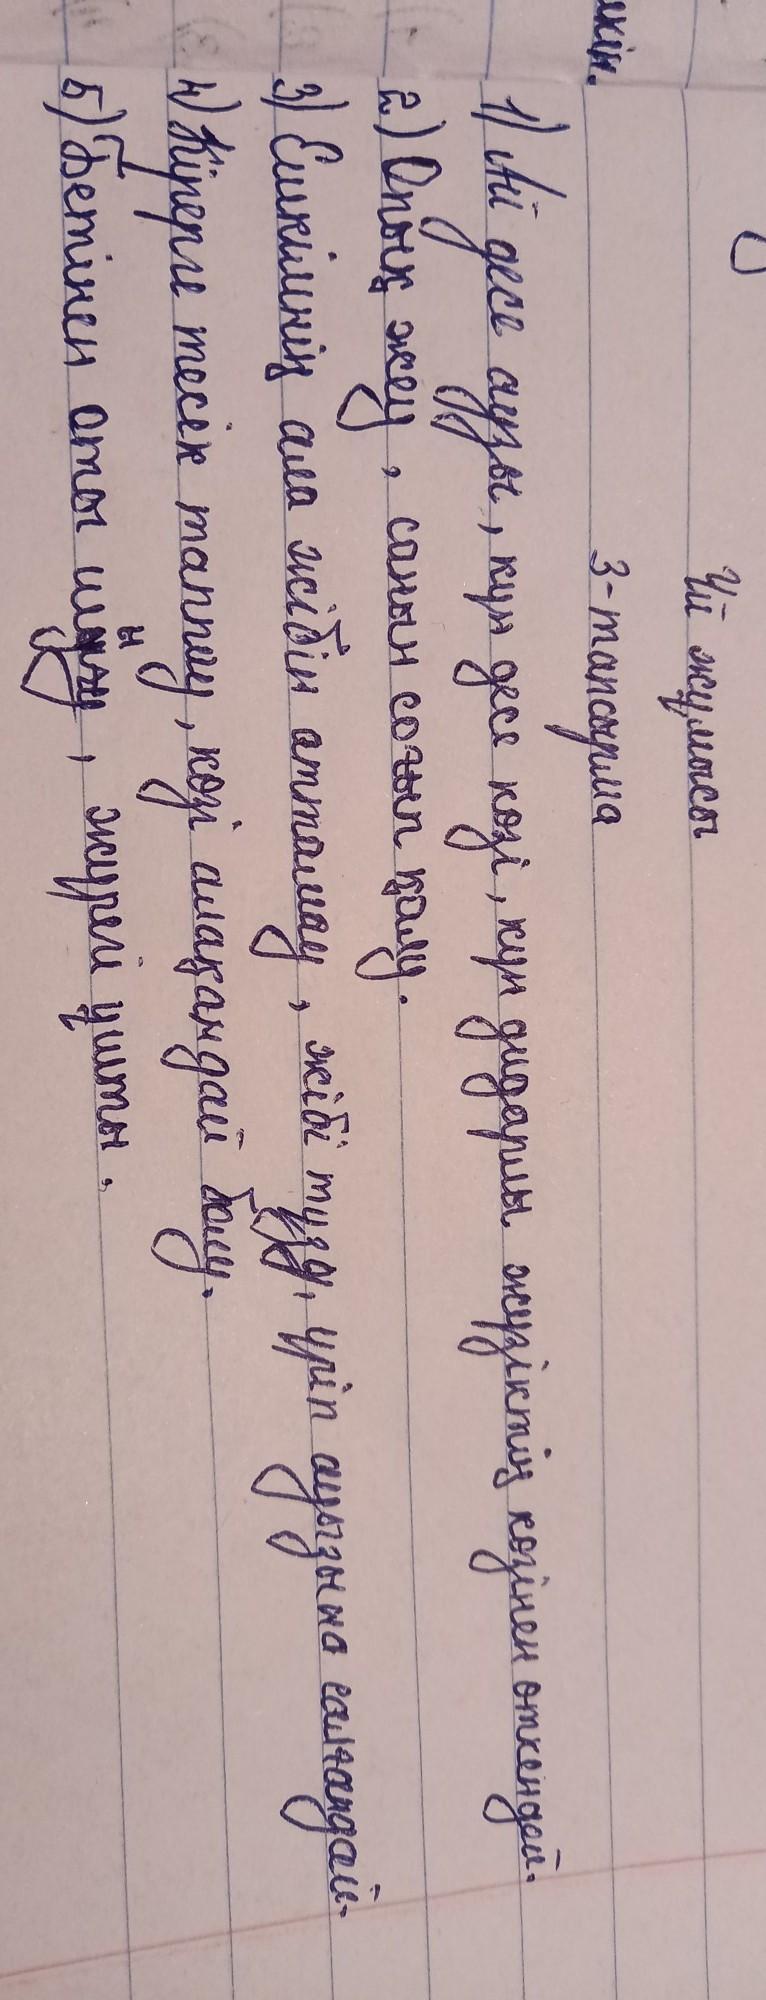 лкін.
Үй жұмысы
3-тапсырма
1) Ай десе аузы, күн десе көзі, күн дидарлы жүзіктің көзінен өткендей.
2) Опық жеу, санын соғып қалу.
3) Ешкімнің ала жібін аттамау, жібі түзу, үріп ауызына салғандай.
4) Кірерге тесік таппау, көзі алақандай болу.
5) Бетінен оты шығу, жүрегі ұшты.